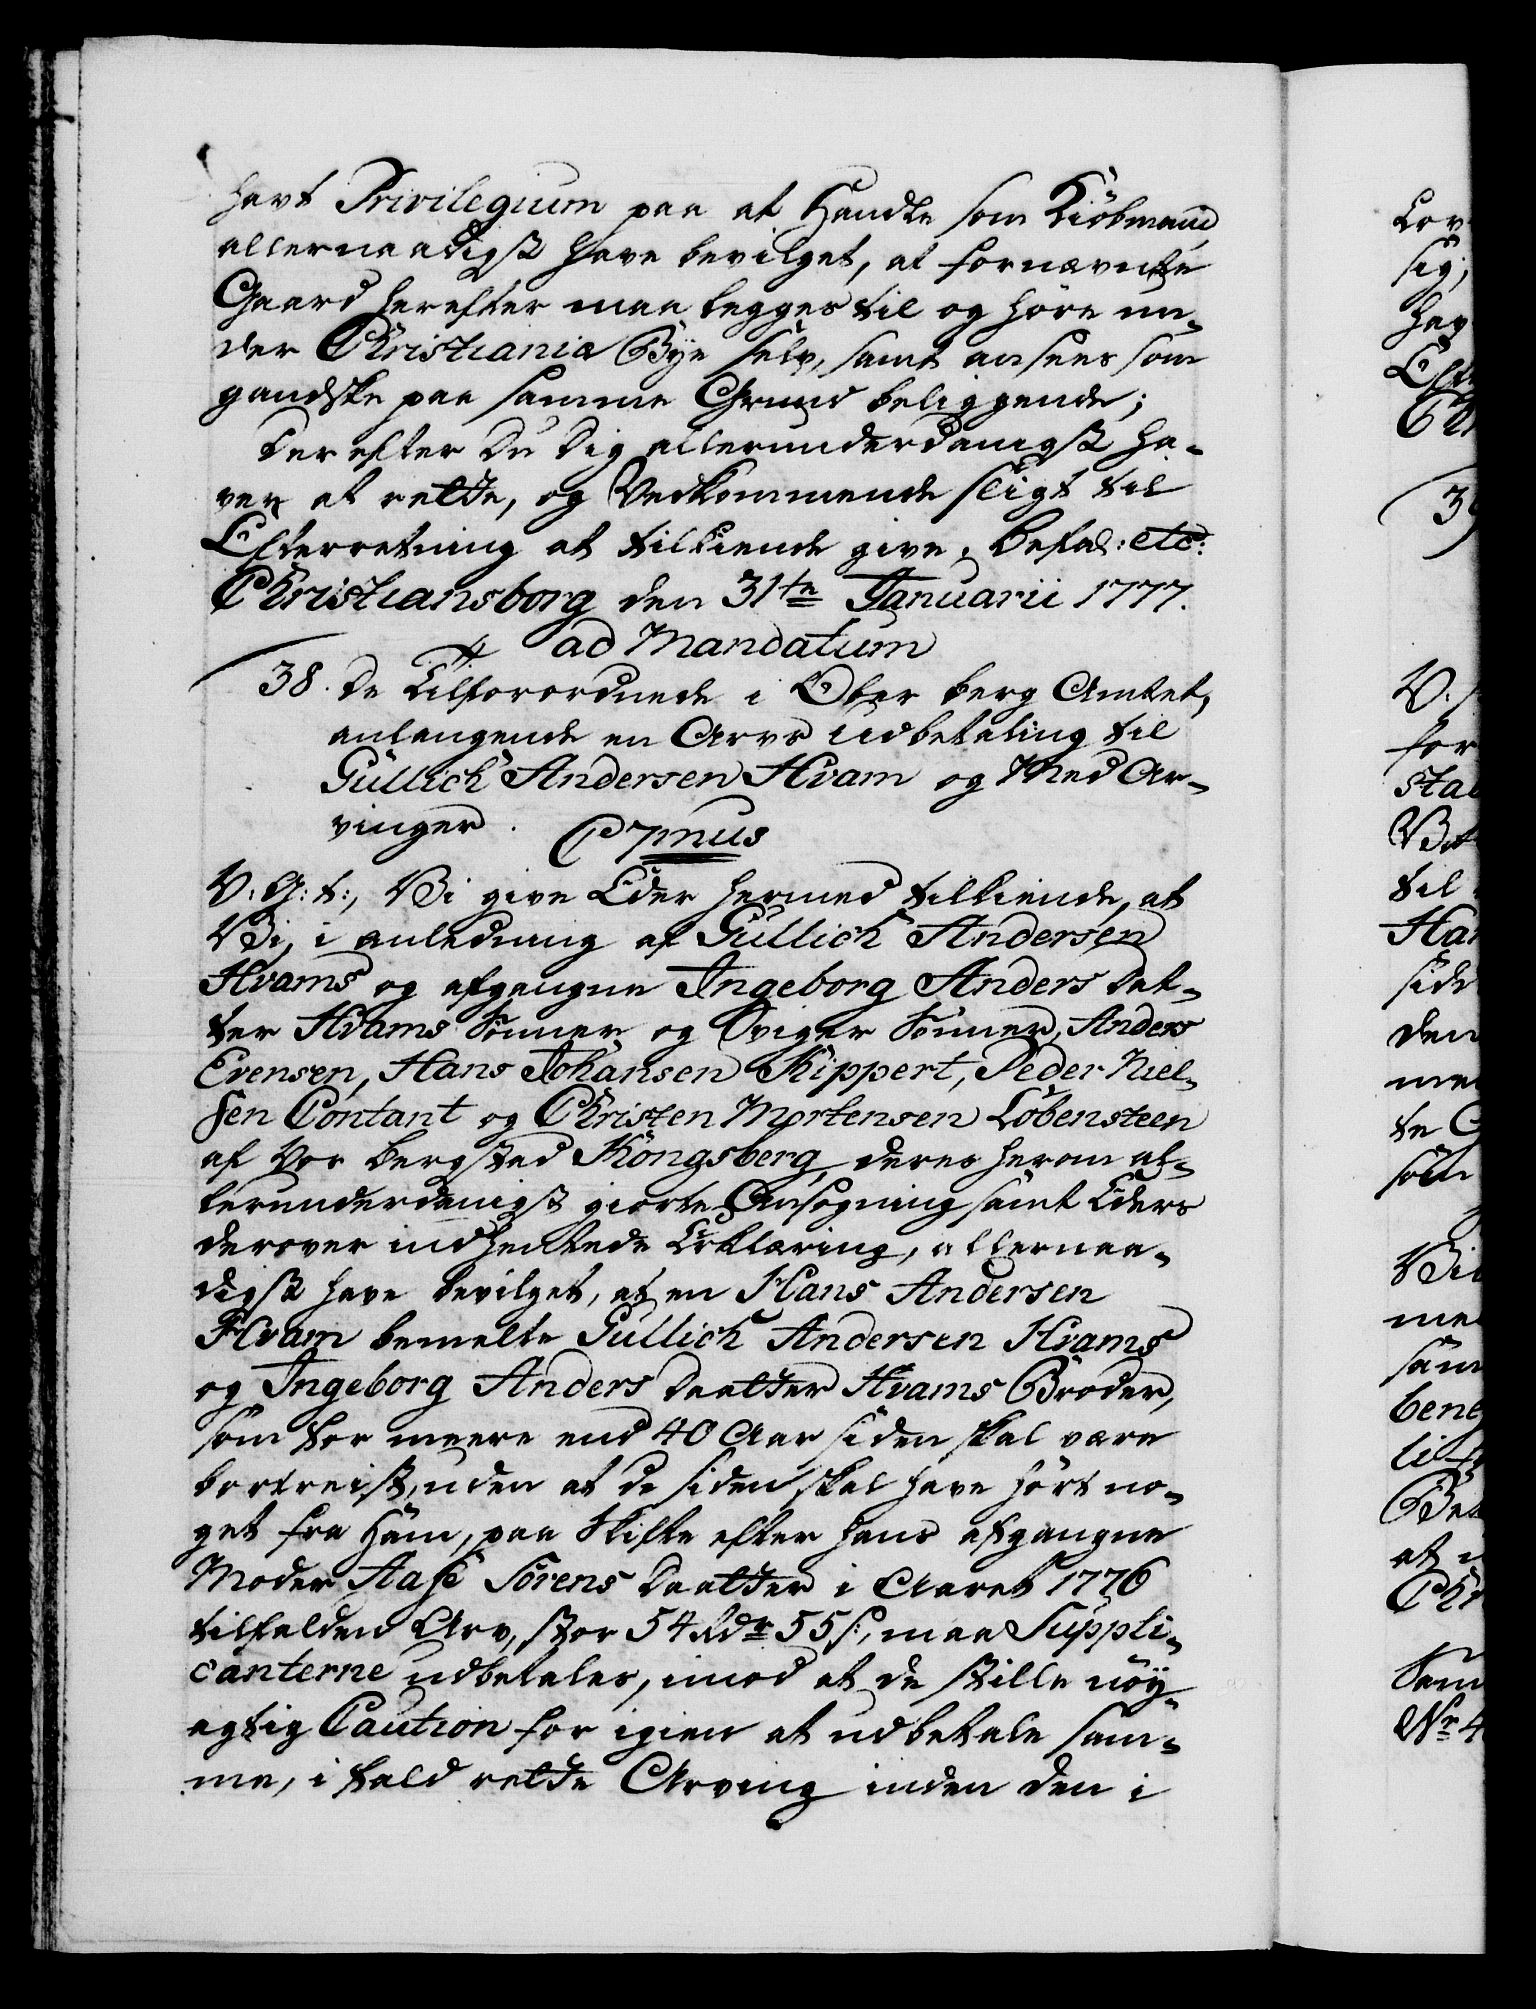 havt Privilegium paa at Handle som Kiöbmand
allernaadigst have bevilget, at fornævnte
Gaard herefter maa legges til og höre un-
der Christiania Bye selv, samt ansees som
gandske paa samme Grund beliggende;
Derefter Du Dig allerunderdanigst ha-
ver at rette, og Vedkommende sligt til
Efterretning at tilkiende give. Befal: etc:
Christiansborg den 31te Januarii 1777.
ad Mandatum
38. De Tilforordnede i Ober berg Amtet,
anlangende en Arvs Udbetaling til
Gullich Andersen Hvam og Med Ar-
vinger.
C7mus
V: G: t:, Vi give Eder hermed tilkiende, at
Vi, i anledning af Gullich Andersen
Hvams og afgangne Ingeborg Anders Dat-
ter Hvams Sönner og Sviger Sönner, Anders
Evensen, Hans Johansen Kippert, Peder Niel-
sen Contant og Christen Mortensen Löbensteen
af Vor Bergstad Kongsberg, deres herom al-
lerunderdanigst giorte Ansøgning samt Eders
derover indhentede Erklæring, allernaa-
digst have bevilget, at en Hans Andersen
Hvam bemelte Gullich Andersen Hvams
og Ingeborg Anders Daatter Hvams Broder,
som for meere end 40 Aar siden skal være
bortreist, uden at de siden skal have hört no-
get fra Ham, paa Skifte efter hans afgangne
Moder Aase Sörens Daatter i Aaret 1776
tilfalden Arv, stor 54 Rdr 55 s:, maa Suppli-
canterne udbetales, imod at de stille nöy-
agtig Caution for igien at udbetale sam-
me, i fald rette Arving inden den i